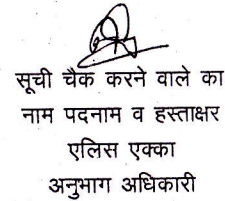 सूची चैक करने वाले का
नाम पदनाम व हस्ताक्षर
एलिस एक्का
अनुभाग अधिकारी